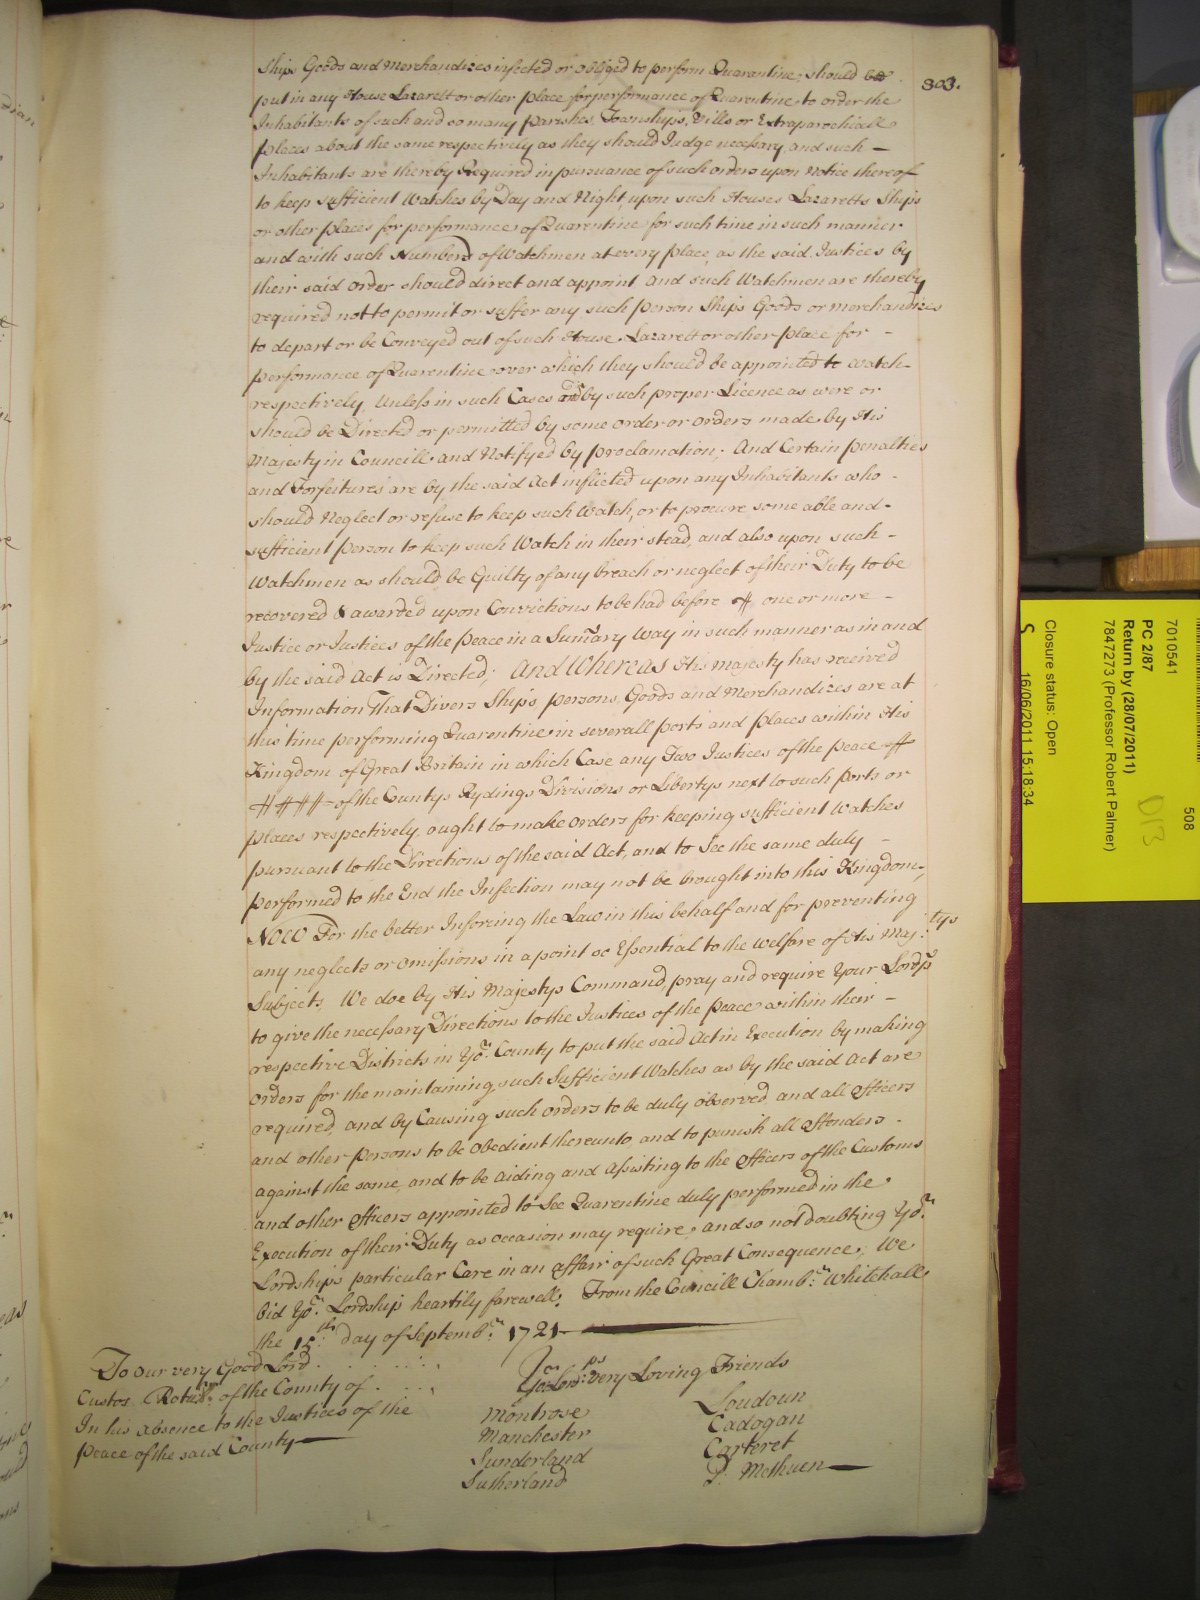 303.
Ships Goods and Merchandizes infected or obliged to perform Quarantine, should be
put in any House Lazarett or other place for performance of Quarentine, to order the
Inhabitants of such and so many Parishes, Townships, Vills or Extraparochiall
places about the same respectively as they should Judge necessary, and such –
Inhabitants are thereby Required in pursuance of such orders upon Notice thereof
to keep sufficient Watches by Day and Night, upon such Houses Lazaretts Ships
or other places for performance of Quarentine for such time in such manner
and with such Numbers of Watchmen at every place, as the said Justices by
their said Order should direct and appoint, And such Watchmen are thereby
required not to permit or suffer any such person Ships Goods or Merchandizes
to depart or be Conveyed out of such House, Lazarett or other place for –
performance of Quarentine over which they should be appointed to watch
respectively, Unless in such Cases and by such proper Licence as were or
should be Directed or permitted by some order or orders made by His
Majesty in Councill and Notifyed by proclamation. And Certain penalties
and Forfeitures are by the said Act inflicted upon any Inhabitants who –
should Neglect or refuse to keep such Watch, or to procure some able and –
sufficient person to keep such Watch in their stead, and also upon such –
Watchmen as should be Guilty of any breach or neglect of their Duty to be
recovered & awarded upon Convictions to be had before one or more –
Justice or Justices of the Peace in a Sum̃ary Way in such manner as in and
by the said Act is Directed; And Whereas His Majesty has received
Information That Divers Ships, persons, Goods and Merchandizes are at
this time performing Quarentine in severall ports and places within His
Kingdom of Great Britain in which Case any Two Justices of the peace
of the Countys Rydings Divisions or Libertys next to such Ports or
places respectively, ought to make orders for keeping sufficient Watches
pursuant to the Directions of the said Act, and to See the same duly –
performed to the End the Infection may not be brought into this Kingdom,
NOW For the better Inforcing the Law in this behalf and for preventing
any neglects or omissions in a point so Essential to the welfare of His Maj:tys
Subjects, We doe by His Majestys Command, pray and require Your Lordp
to give the necessary Directions to the Justices of the Peace within their –
respective Districts in Yor. County to put the said Act in Execution by making
orders for the maintaining such Sufficient Watches as by the said Act are
required, and by Causing such orders to be duly observed and all officers
and other Persons to be obedient thereunto and to punish all offenders .
against the same, and to be aiding and assisting to the officers of the Customs
and other officers appointed to See Quarentine duly performed in the
Execution of their Duty as occasion may require, and so not doubting Yor.
Lordships particular Care in an affair of such Great Consequence, We
bid Yor. Lordship heartily farewell. From the Councill Chamb:r Whitehall
the 15:th day of Septemb:r 1721.
To our very Good Lord . . . . . .
Custos Rotul: of the County of . . . .
In his absence to the Justices of the
Peace of the said County
Yor. Lordps: very Loving Friends
Montrose
Manchester
Sunderland
Sutherland
Loudoun
Cadogan
Carteret
P. Methuen
508
7010541
PC 2/87
Return by (28/07/2011)
7847273 (Professor Robert Palmer)
D13
Closure status: Open
16/06/2011 15:18:34
S